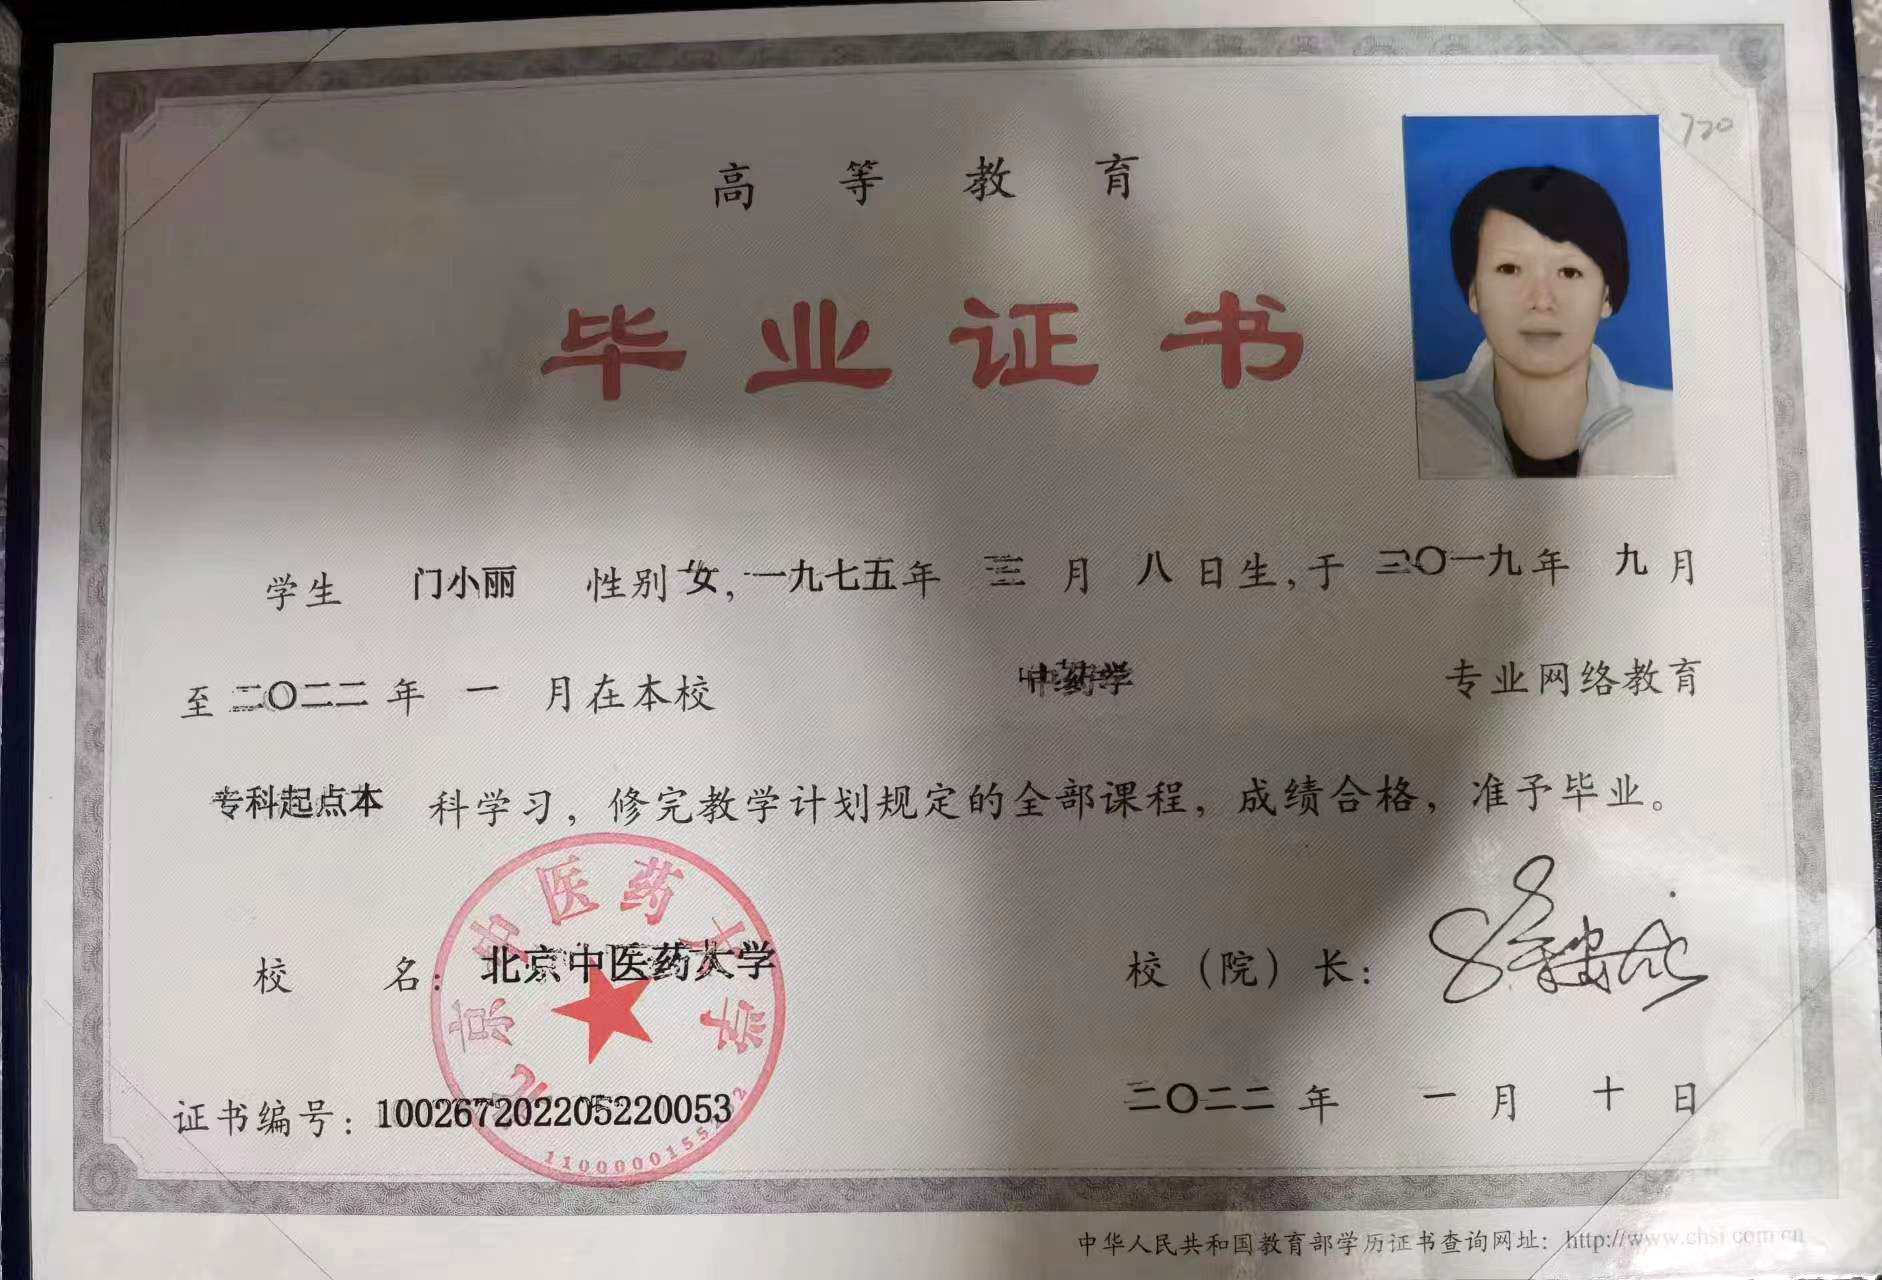 720
高等教育
毕业证书
学生 门小丽 性别 女, 一九七五年 三 月 八 日生, 于 二〇一九年 九 月
至 二〇二二 年 一 月在本校 中药学 专业网络教育
专科起点本 科学习，修完教学计划规定的全部课程，成绩合格，准予毕业。
北京中医药大学
校 名: 北京中医药大学 校（院）长:
证书编号: 100267202205220053 二〇二二 年 一 月 十 日
中华人民共和国教育部学历证书查询网址: http://www.chsi.com.cn